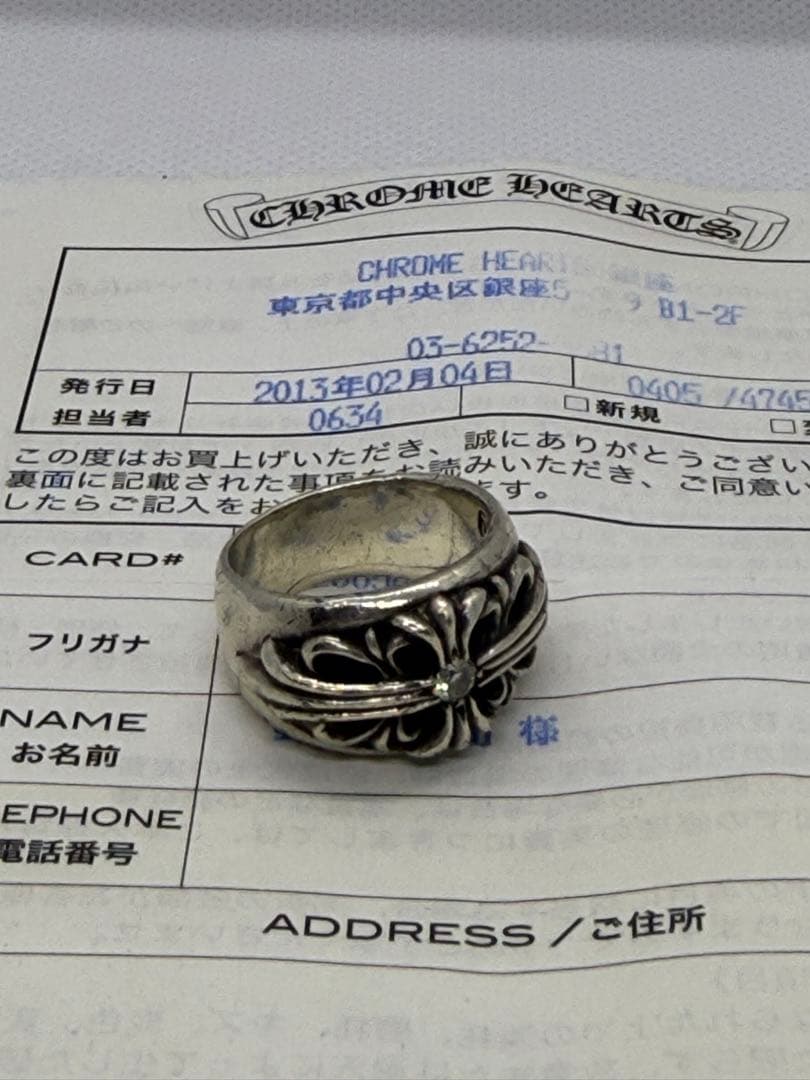 CHROME HEARTS
CHROME HEAR 銀座
東京都中央区銀座5 9 B1-2F
03-6252- 81
発行日 2013年02月04日 0405 /4745
担当者 0634 □新規 □
この度はお買上げいただき、誠にありがとうござい
裏面に記載された事項をお読みいただき、ご同意い
したらご記入をお ます。
CARD#
フリガナ
NAME 様
お名前
EPHONE
電話番号
ADDRESS /ご住所